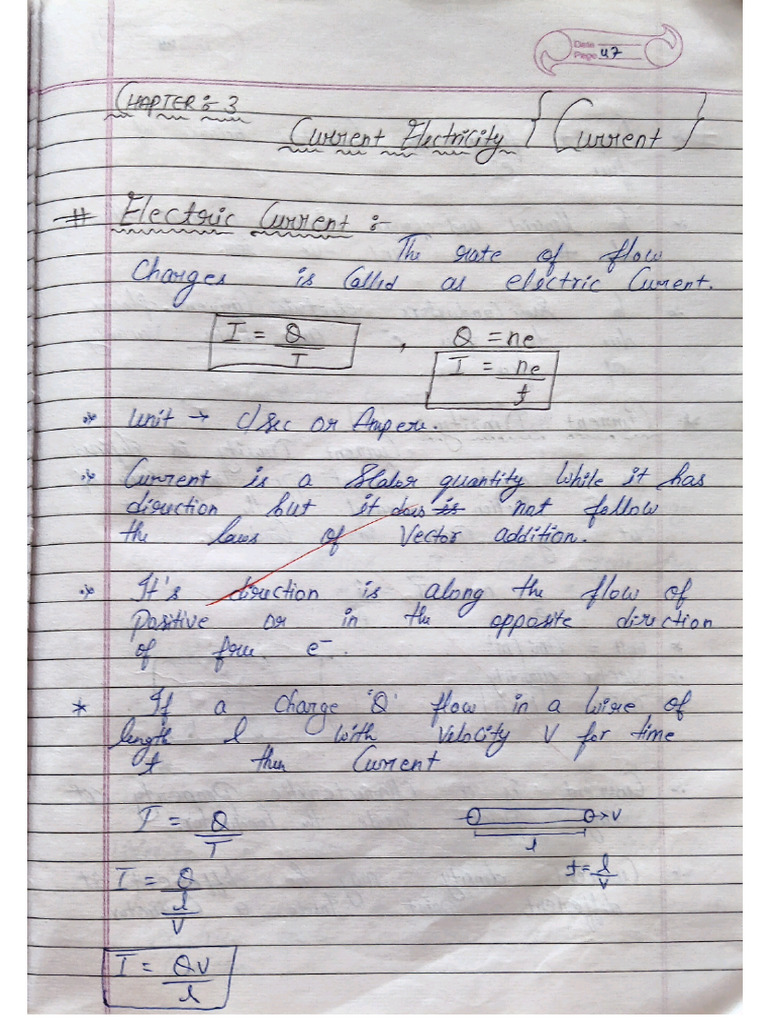 Date
Page 47
CHAPTER :- 3
Current Electricity { Current }
# Electric Current :-
The rate of flow
Charges is Called as electric Current.
I = Q/T , Q = ne
I = ne/t
Unit → C/Sec or Ampere.
Current is a Scalar quantity While it has
direction but it does is not follow
the laws of Vector addition.
It's direction is along the flow of
Positive or in the opposite direction
of free e⁻.
* If a Charge 'Q' flow in a Wire of
length l with Velocity V for time
t then Current
I = Q/T
→V
l
t = l/V
I = Q/(l/V)
I = QV/l